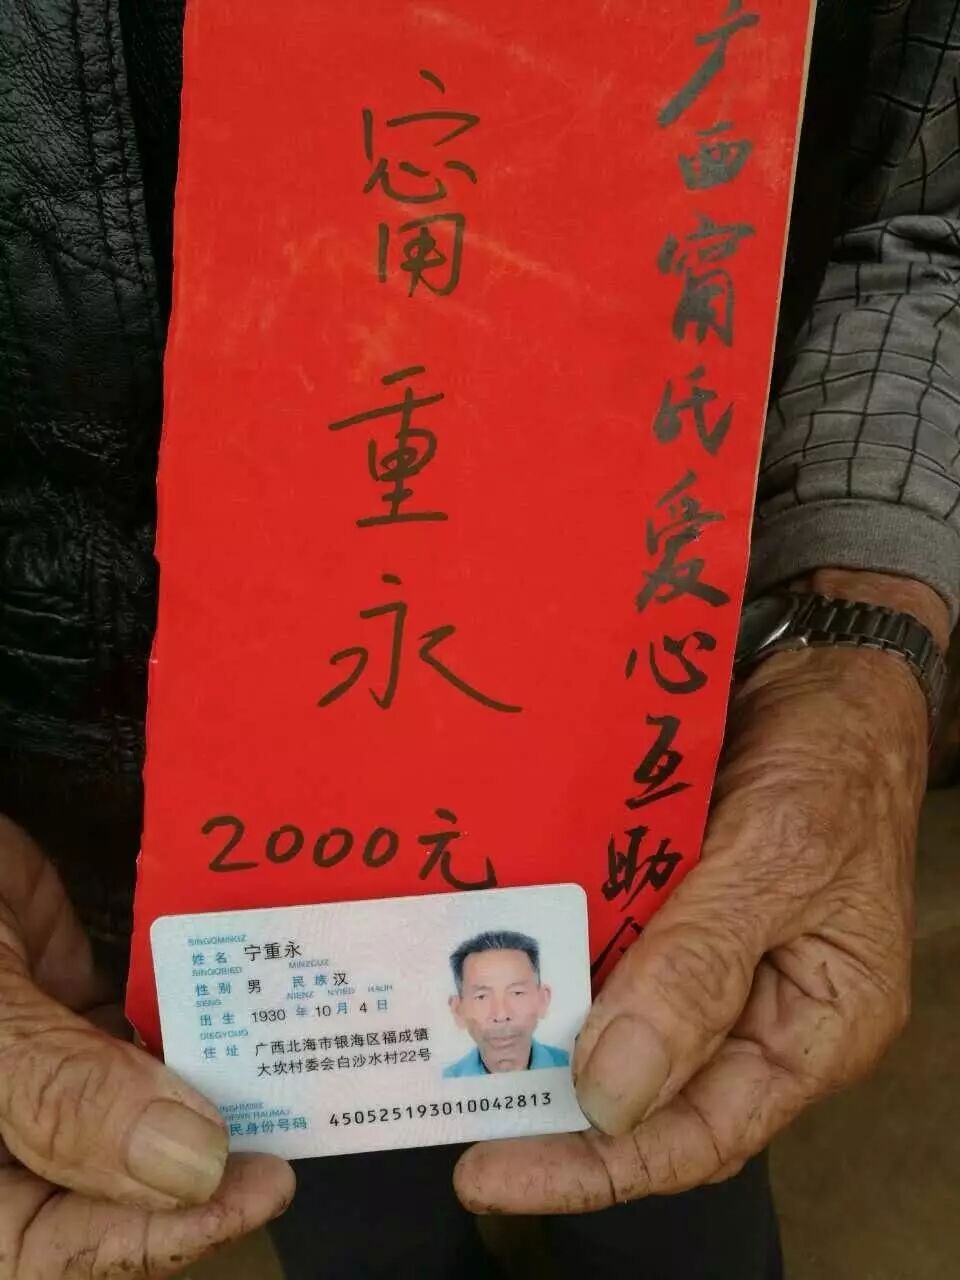 广西甯氏爱心互助
甯重永
2000元
SINGQMINGZ
姓名 宁重永
SINGQBIED MINZCUZ
性别 男 民族 汉
SENG NIENZ NYIED HAUH
出生 1930 年 10 月 4 日
DIEGYOUQ
住址 广西北海市银海区福成镇
大坎村委会白沙水村22号
HAUMAJ
民身份号码 450525193010042813